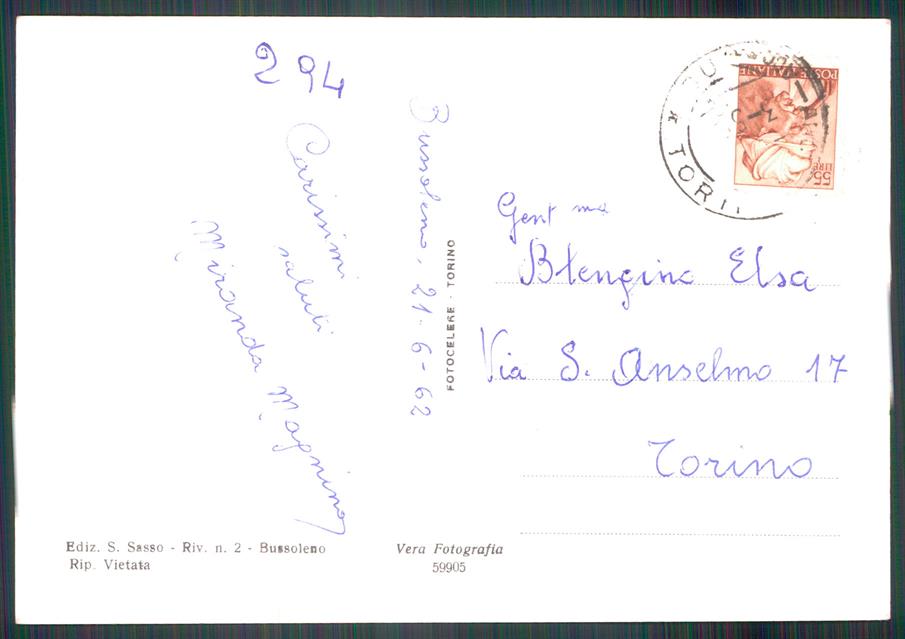 294
Bussoleno, 21-6-62
Carissimi
saluti
Miranda Magnino
FOTOCELERE - TORINO
POSTE ITALIANE
55
LIRE
* TORI
Gent ma
Blengino Elsa
Via S. Anselmo 17
Torino
Ediz. S. Sasso - Riv. n. 2 - Bussoleno
Rip. Vietata
Vera Fotografia
59905